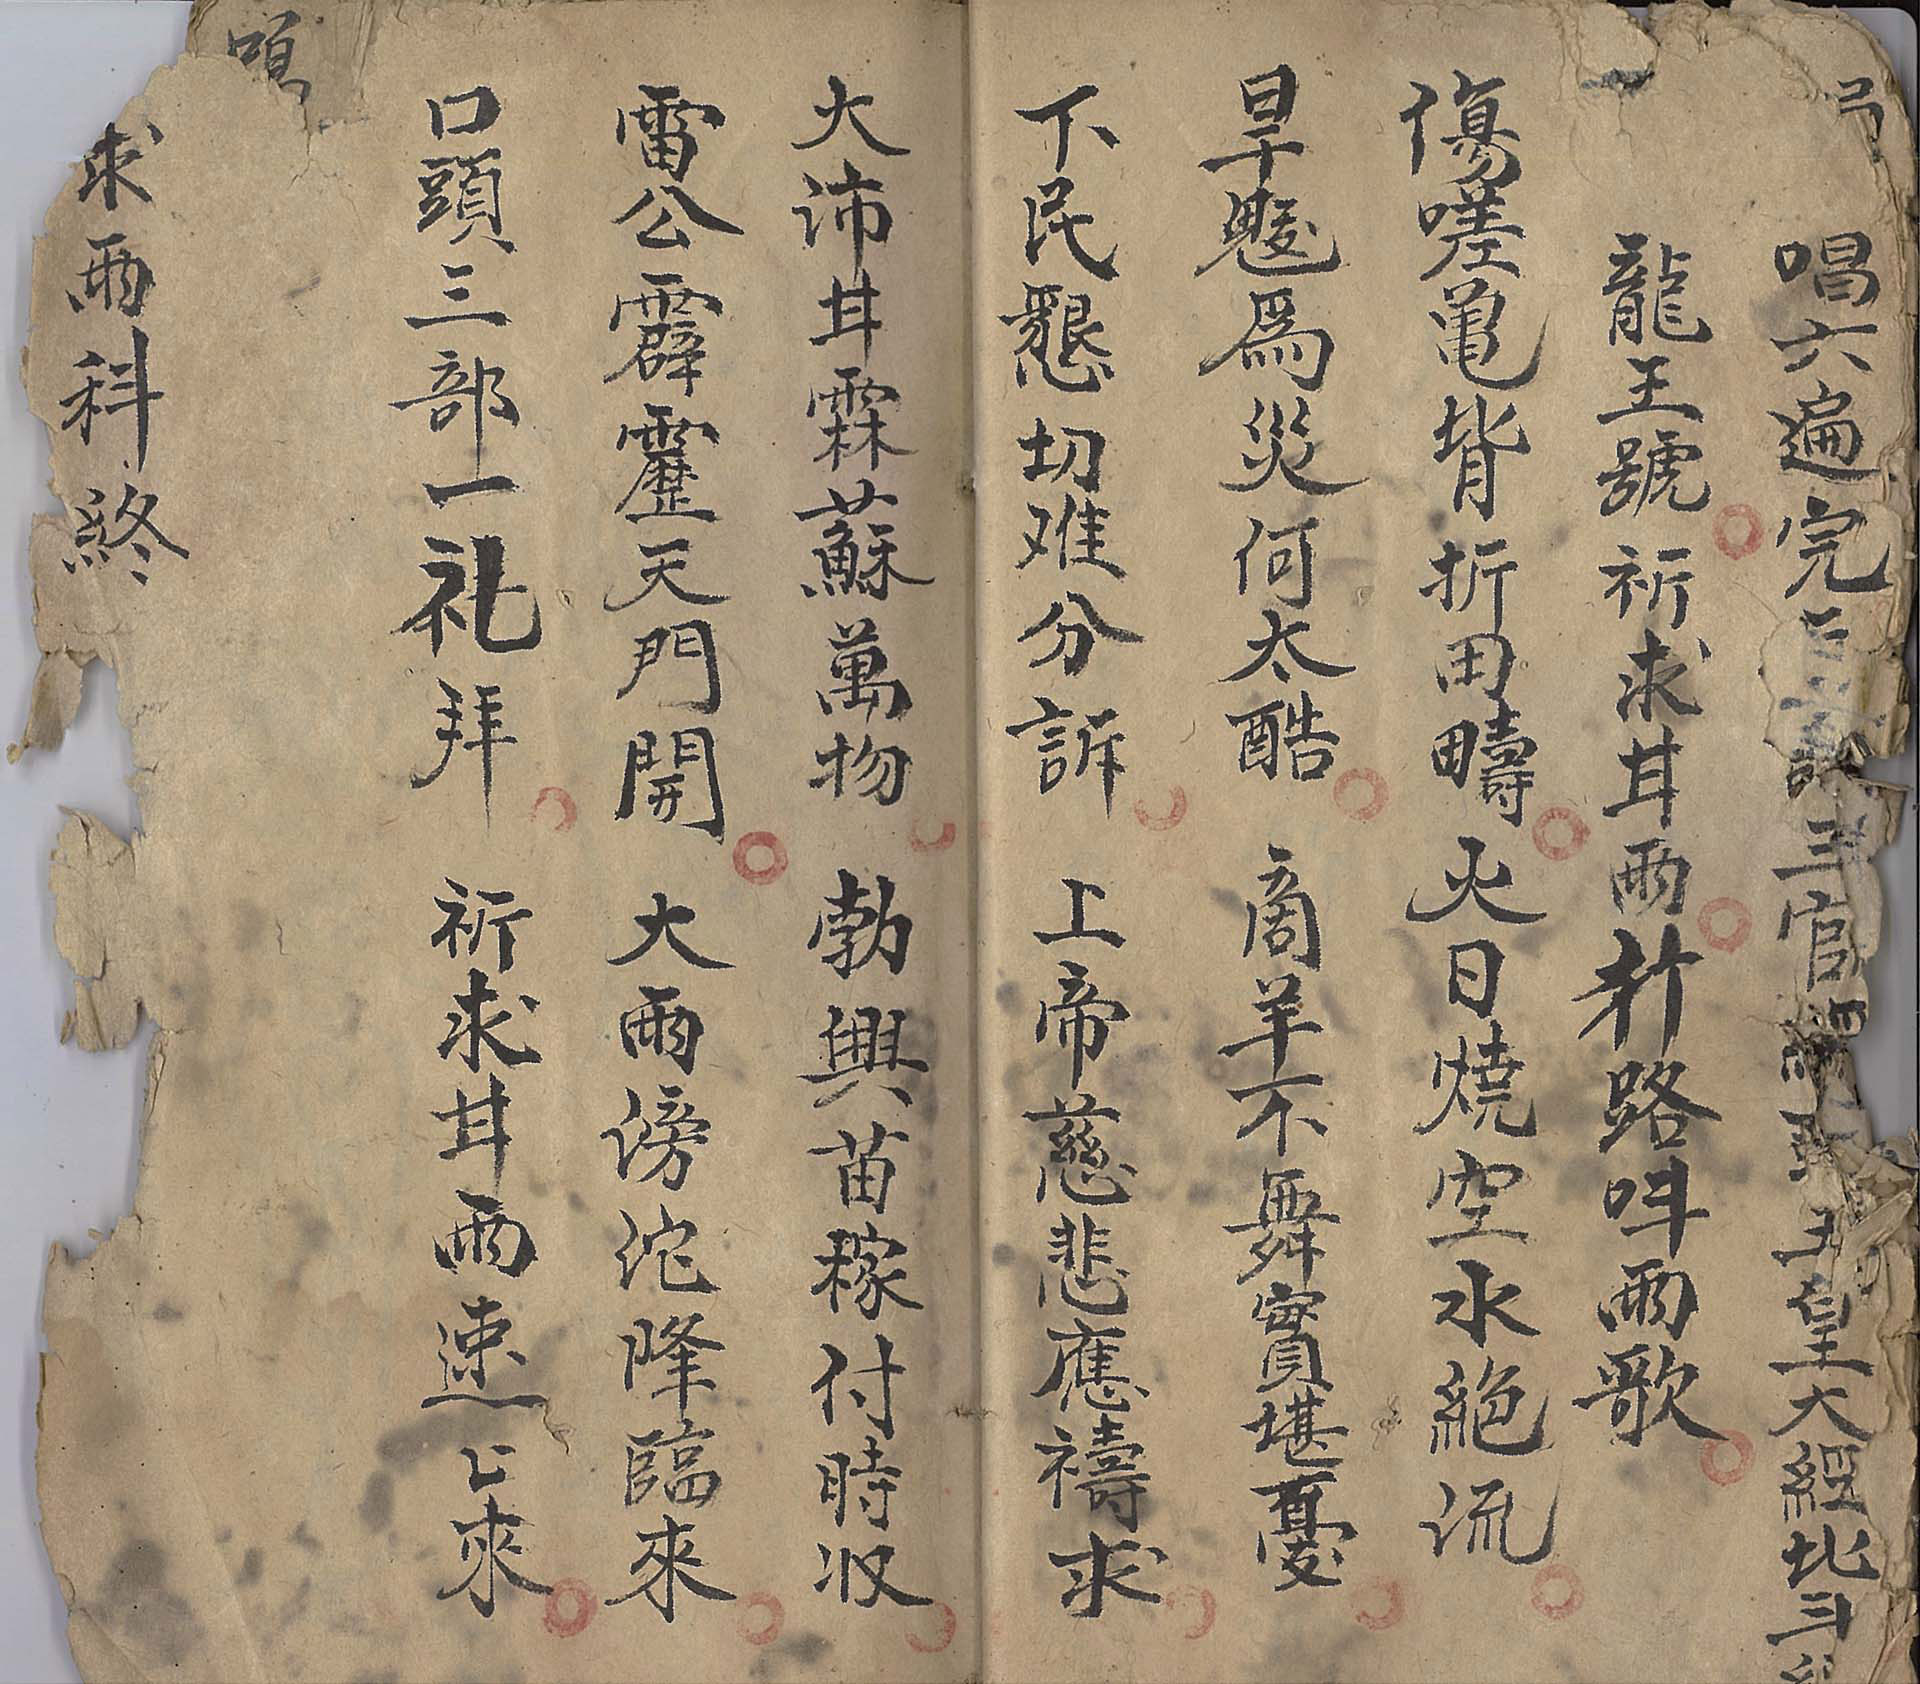 唱六遍完三官皇大經北斗
龍王號祈求甘雨行路叫雨歌
傷嗟亀背折田疇火日燒空水絕流
旱魃為災何太酷商羊不舞實堪憂
下民懇切难分訴上帝慈悲應禱求
大沛甘霖蘇萬物勃興苗稼付時收
雷公霹靂天門開大雨滂沱降臨來
口頭三部一礼拜祈求甘雨速匕來
求雨科終